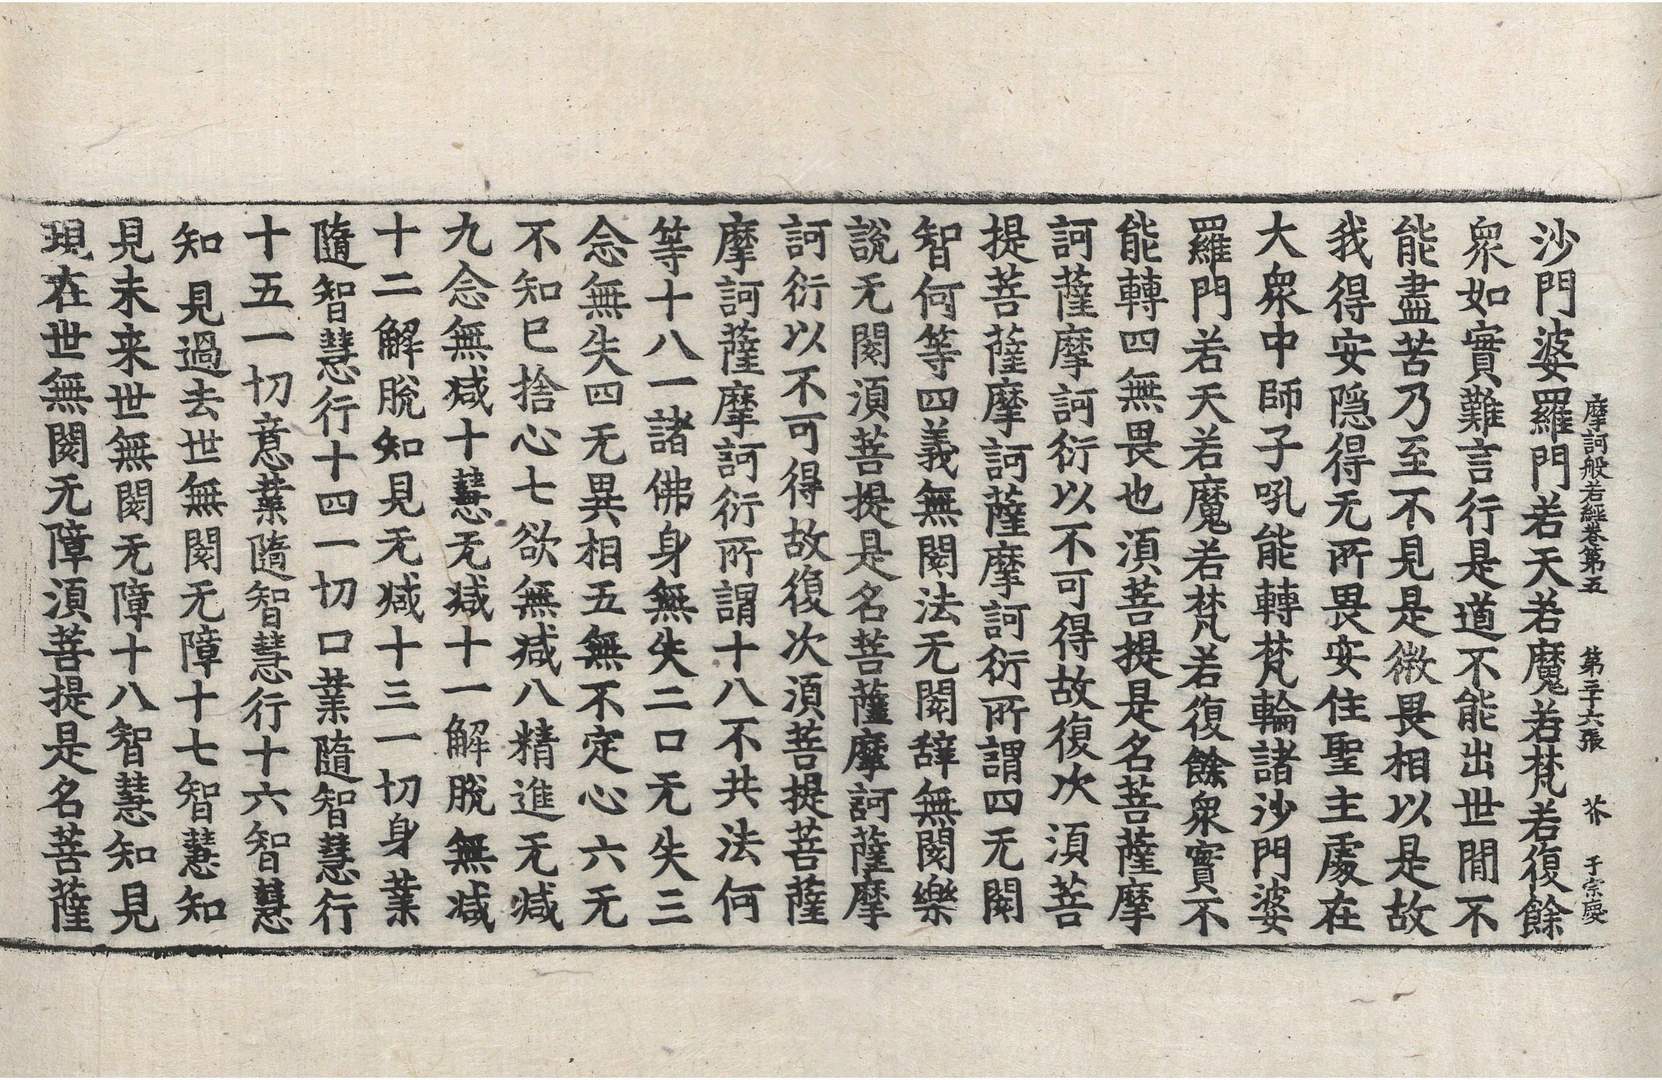 摩訶般若經卷第五 第二十六張 芥 于宗慶
沙門婆羅門若天若魔若梵若復餘
衆如實難言行是道不能出世間不
能盡苦乃至不見是微畏相以是故
我得安隱得无所畏安住聖主處在
大衆中師子吼能轉梵輪諸沙門婆
羅門若天若魔若梵若復餘衆實不
能轉四無畏也須菩提是名菩薩摩
訶薩摩訶衍以不可得故復次須菩
提菩薩摩訶薩摩訶衍所謂四无閡
智何等四義無閡法无閡辭無閡樂
說无閡須菩提是名菩薩摩訶薩摩
訶衍以不可得故復次須菩提菩薩
摩訶薩摩訶衍所謂十八不共法何
等十八一諸佛身無失二口无失三
念無失四无異相五無不定心六无
不知已捨心七欲無減八精進无減
九念無減十慧无減十一解脫無減
十二解脫知見无減十三一切身業
隨智慧行十四一切口業隨智慧行
十五一切意業隨智慧行十六智慧
知見過去世無閡无障十七智慧知
見未來世無閡无障十八智慧知見
現在世無閡无障須菩提是名菩薩